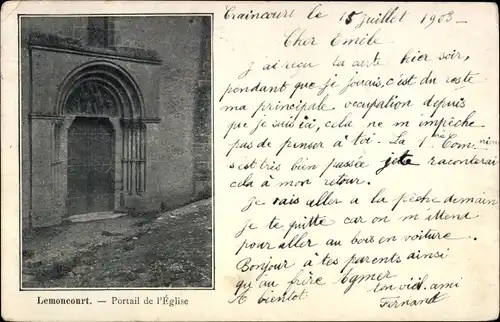 Craincourt le 15 Juillet 1903 —
Cher Emile
J ai reçu la carte hier soir,
pendant que je jouais, c'est du reste
ma principale occupation depuis
que je suis ici, cela ne m impêche
pas de penser à toi. La 1ère Com.nion
s'est très bien passée je te raconterai
cela à mon retour.
Je vais aller a la pêche demain
je te quitte car on m attend
pour aller au bois en voiture.
Bonjour à tes parents ainsi
qu'au frère
A bientôt ton vieil ami
Fernand
Lemoncourt. — Portail de l'Église